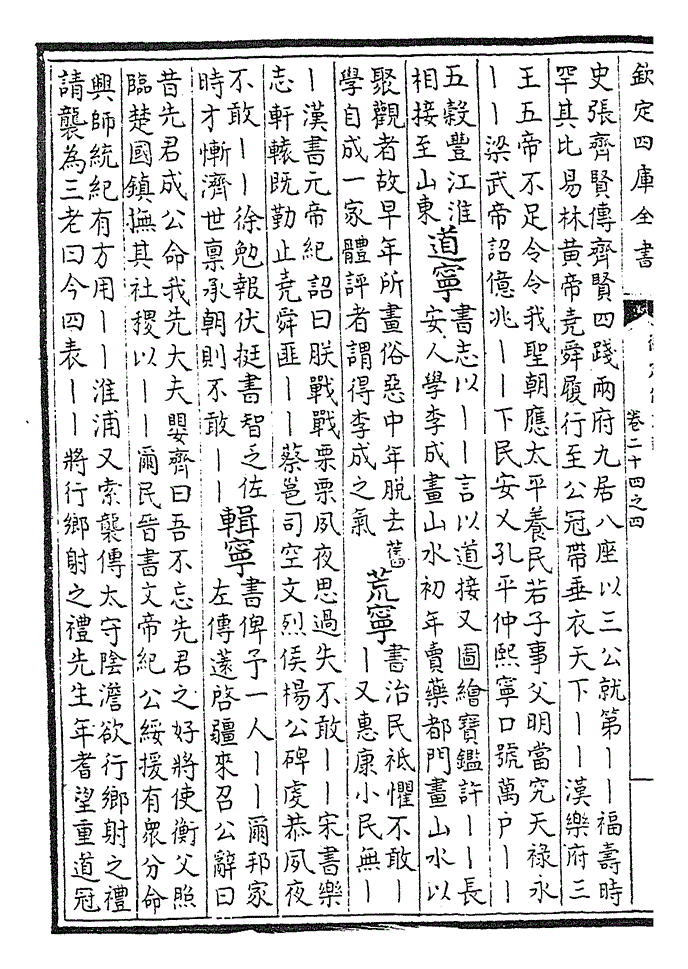 欽定四庫全書
卷二十四之四
史張齊賢傳齊賢四踐兩府九居八座以三公就第丨丨福壽時
罕其比易林黃帝堯舜履行至公冠帶垂衣天下丨丨漢樂府三
王五帝不足令令我聖朝應太平養民若子事父明當究天祿永
丨丨梁武帝詔億兆丨丨下民安乂孔平仲熙寧口號萬户丨丨
五穀豐江淮
相接至山東
道寧
書志以丨丨言以道接又圖繪寶鑑許丨丨長
安人學李成畫山水初年賣藥都門畫山水以
聚觀者故早年所畫俗惡中年脫去舊
學自成一家體評者謂得李成之氣
荒寧
書治民祗懼不敢丨
丨又惠康小民無丨
丨漢書元帝紀詔曰朕戰戰栗栗夙夜思過失不敢丨丨宋書樂
志軒轅既勤止堯舜匪丨丨蔡邕司空文烈侯楊公碑虔恭夙夜
不敢丨丨徐勉報伏挺書智之佐
時才慚濟世禀承朝則不敢丨丨
輯寧
書俾予一人丨丨爾邦家
左傳薳啓疆來召公辭曰
昔先君成公命我先大夫嬰齊曰吾不忘先君之好將使衡父照
臨楚國鎮撫其社稷以丨丨爾民晉書文帝紀公綏援有衆分命
興師統紀有方用丨丨淮浦又索襲傳太守陰澹欲行鄉射之禮
請襲為三老曰今四表丨丨將行鄉射之禮先生年耆望重道冠